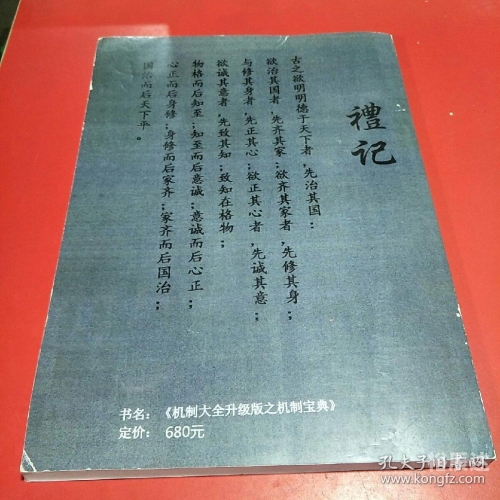 禮记
古之欲明明德于天下者，先治其国；
欲治其国者，先齐其家；欲齐其家者，先修其身；
与修其身者，先正其心；欲正其心者，先诚其意；
欲诚其意者，先致其知；致知在格物；
物格而后知至；知至而后意诚；意诚而后心正；
心正而后身修；身修而后家齐；家齐而后国治；
国治而后天下平。
书名：《机制大全升级版之机制宝典》
定价： 680元
www.kongfz.com